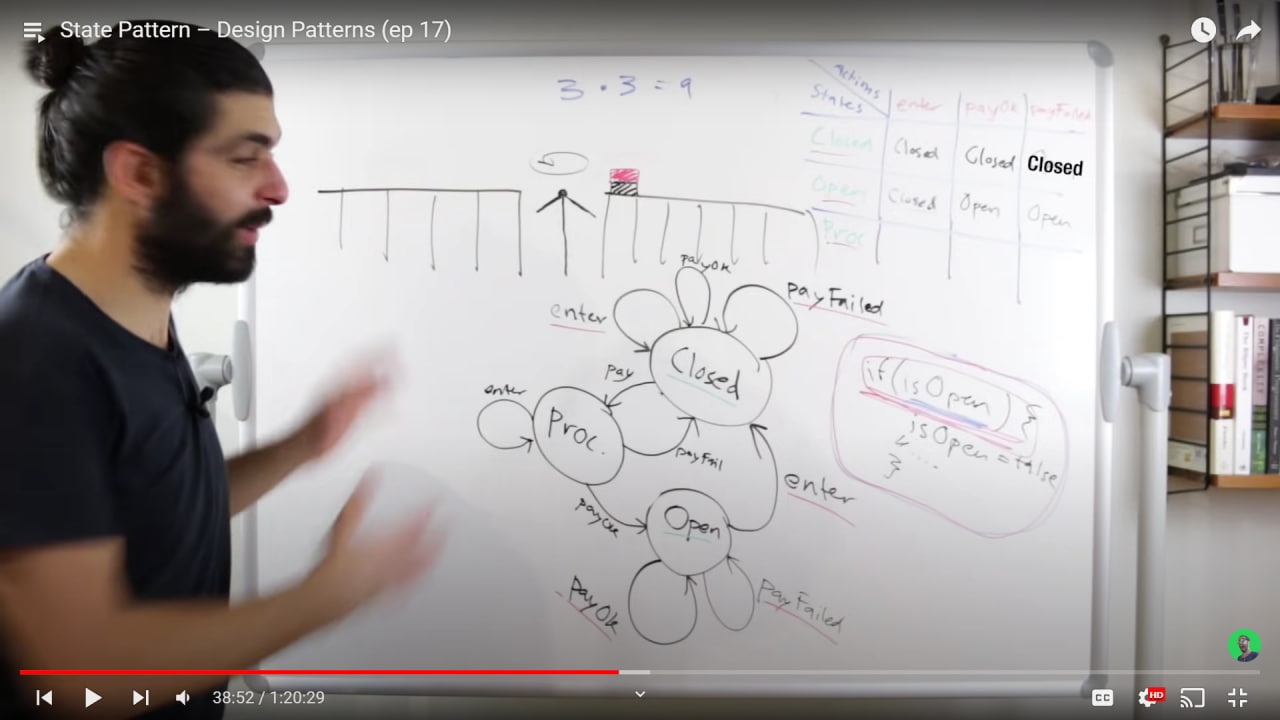 State Pattern – Design Patterns (ep 17)
3 · 3 = 9
actions
States
enter
payOk
payFailed
Closed
Closed
Closed
Closed
Open
Closed
Open
Open
Proc
payOk
enter
payFailed
Closed
pay
enter
Proc.
payFail
enter
payOk
Open
PayOk
PayFailed
if(isOpen) {
isOpen = false
....
}
COMPLEXITY
38:52 / 1:20:29
CC
HD